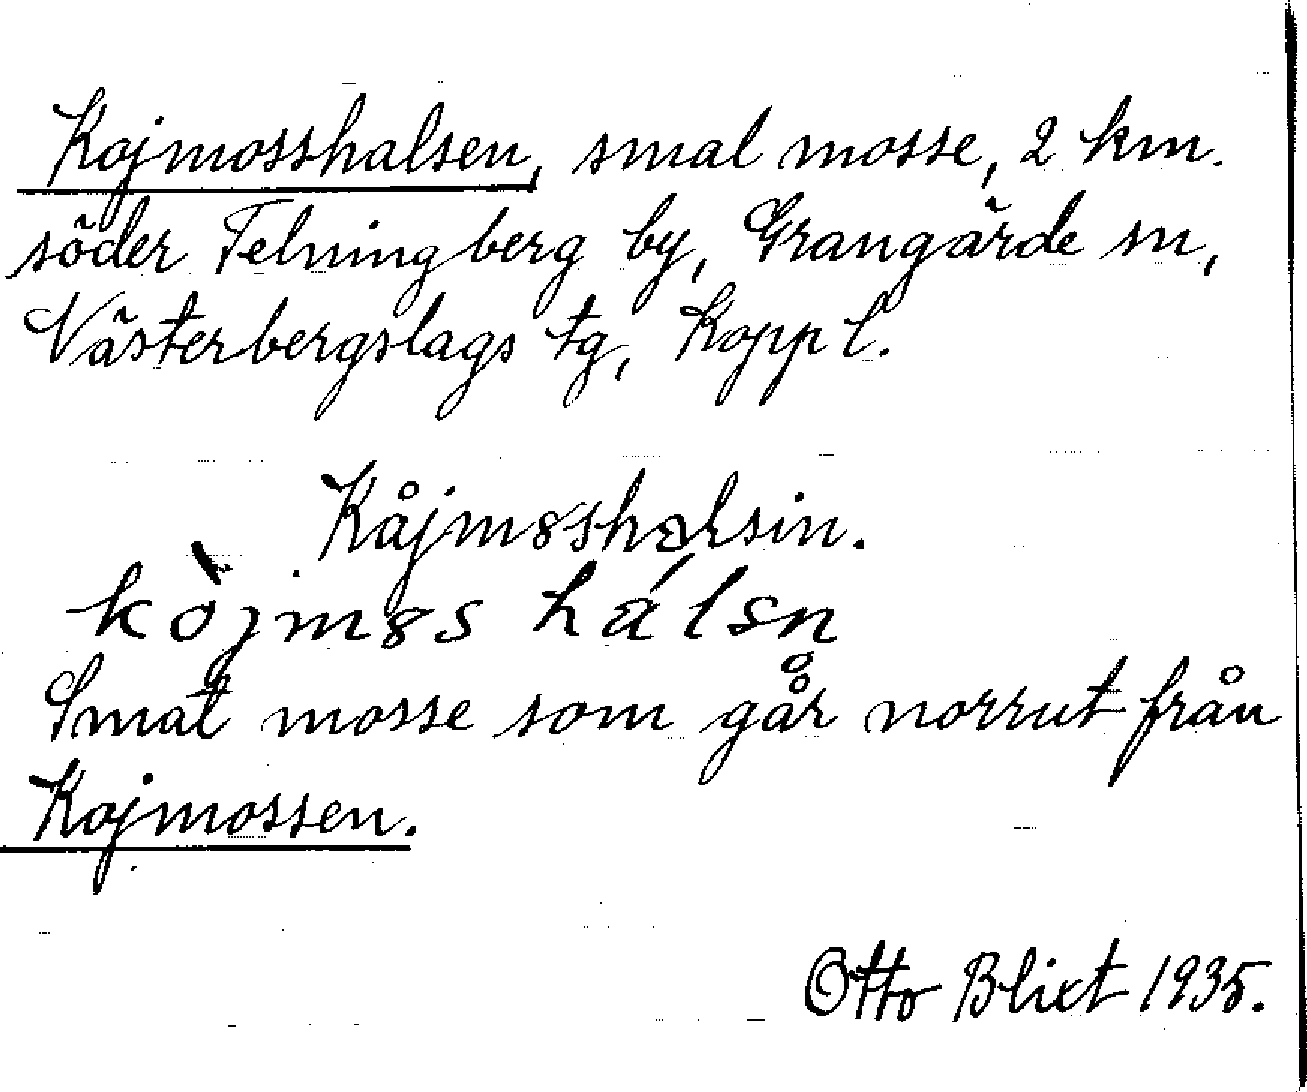 Kojmosshalsen, smal mosse, 2 km.
söder Felningberg by, Grangärde sn,
Västerbergslags tg, Kopp l.
Kåjmȣshalsin.
kòjmȣs hálsn
Smal mosse som går norrut från
Kojmossen.
Otto Blixt 1935.